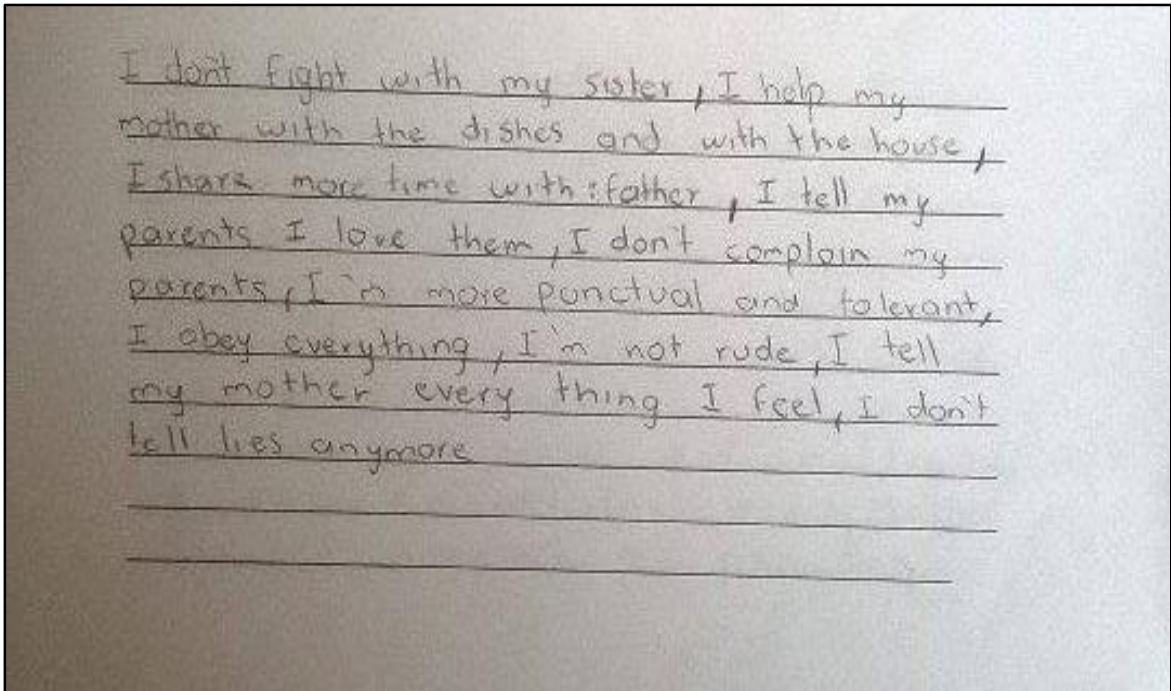 I don't fight with my sister, I help my
mother with the dishes and with the house,
I share more time with: father, I tell my
parents I love them, I don't complain my
parents, I'm more punctual and tolerant,
I obey everything, I'm not rude, I tell
my mother every thing I feel, I don't
tell lies anymore